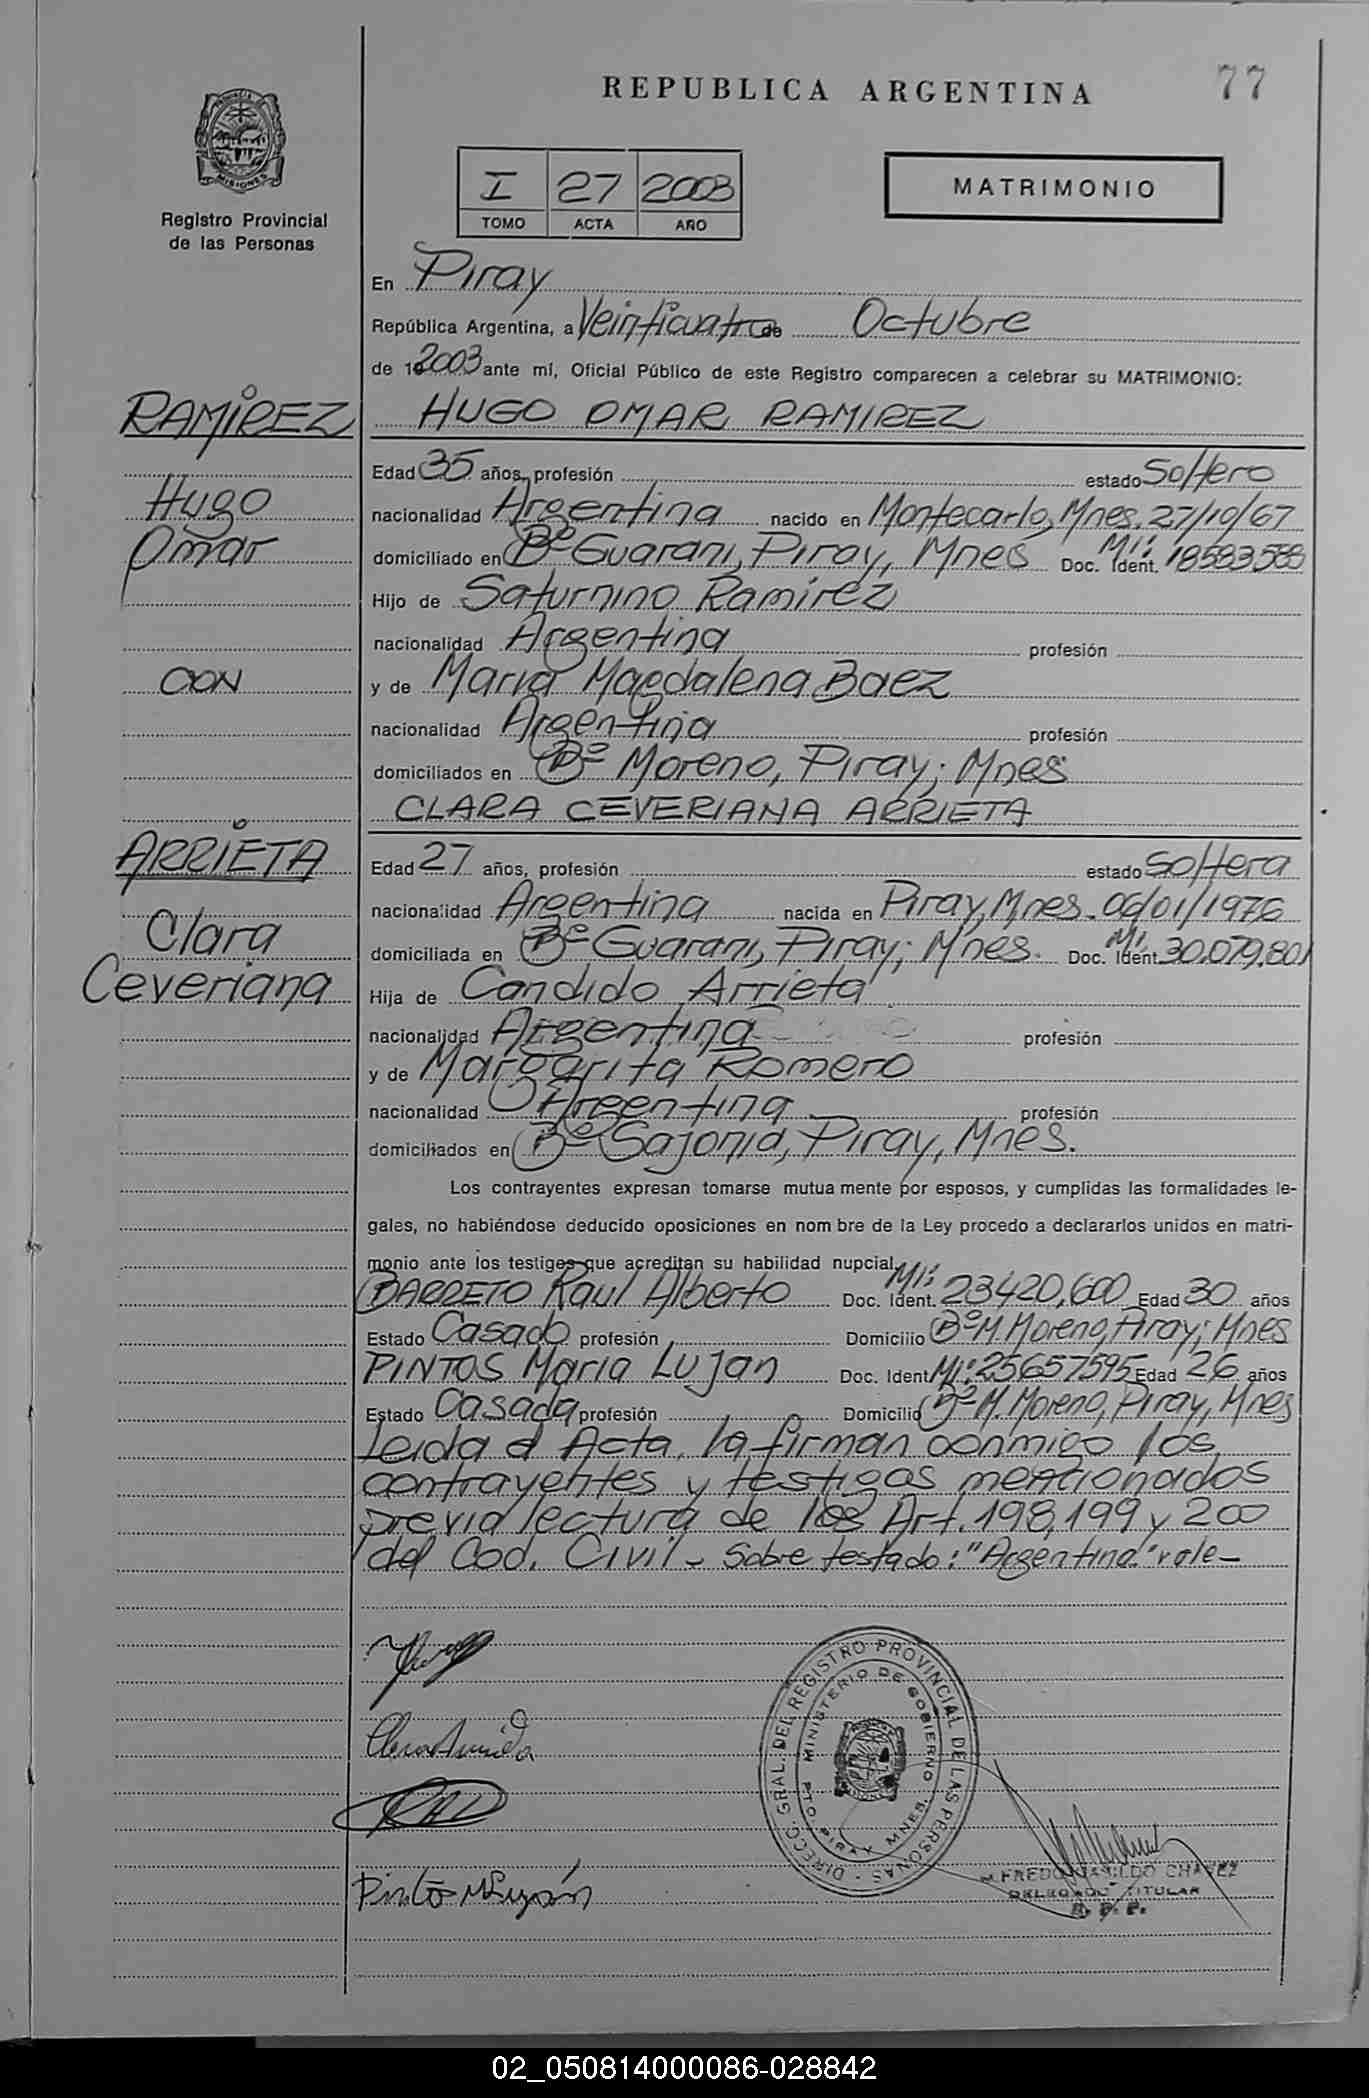 77
REPUBLICA ARGENTINA
PROVINCIA DE MISIONES
Registro Provincial
de las Personas
I 27 2003
TOMO ACTA AÑO
MATRIMONIO
En Piray
República Argentina, a Veinticuatro de Octubre
de 2003 ante mí, Oficial Público de este Registro comparecen a celebrar su MATRIMONIO:
RAMIREZ HUGO OMAR RAMIREZ
Edad 35 años, profesión estado Soltero
Hugo nacionalidad Argentina nacido en Montecarlo, Mnes. 27/10/67
Omar domiciliado en Bº Guarani, Piray, Mnes Doc. Ident. MI: 18583588
Hijo de Saturnino Ramirez
nacionalidad Argentina profesión
CON y de Maria Magdalena Baez
nacionalidad Argentina profesión
domiciliados en Bº Moreno, Piray; Mnes
CLARA CEVERIANA ARRIETA
ARRIETA Edad 27 años, profesión estado Soltera
nacionalidad Argentina nacida en Piray, Mnes. 06/01/1976
Clara domiciliada en Bº Guarani, Piray; Mnes. Doc. Ident MI: 30.079.801
Ceveriana Hija de Candido Arrieta
nacionalidad Argentina profesión
y de Margarita Romero
nacionalidad Argentina profesión
domiciliados en Bº Sajonia, Piray, Mnes.
Los contrayentes expresan tomarse mutua mente por esposos, y cumplidas las formalidades le-
gales, no habiéndose deducido oposiciones en nom bre de la Ley procedo a declararlos unidos en matri-
monio ante los testigos que acreditan su habilidad nupcial.
BARRETO Raul Alberto Doc. Ident. MI: 23420,600 Edad 30 años
Estado Casado profesión Domicilio Bº M. Moreno, Piray; Mnes
PINTOS Maria Lujan Doc. Ident MI: 25657595 Edad 26 años
Estado Casada profesión Domicilio Bº M. Moreno, Piray, Mnes
Leida el Acta, la firman conmigo los
contrayentes y testigos mencionados
previa lectura de los Art. 198, 199 y 200
del Cod. Civil - Sobre testado: "Argentina" vale-
DIRECC. GRAL. DEL REGISTRO PROVINCIAL DE LAS PERSONAS
MINISTERIO DE GOBIERNO
PTO. PIRAY MNES.
CHAVEZ
DELEGADO TITULAR
R. P. P.
02_050814000086-028842